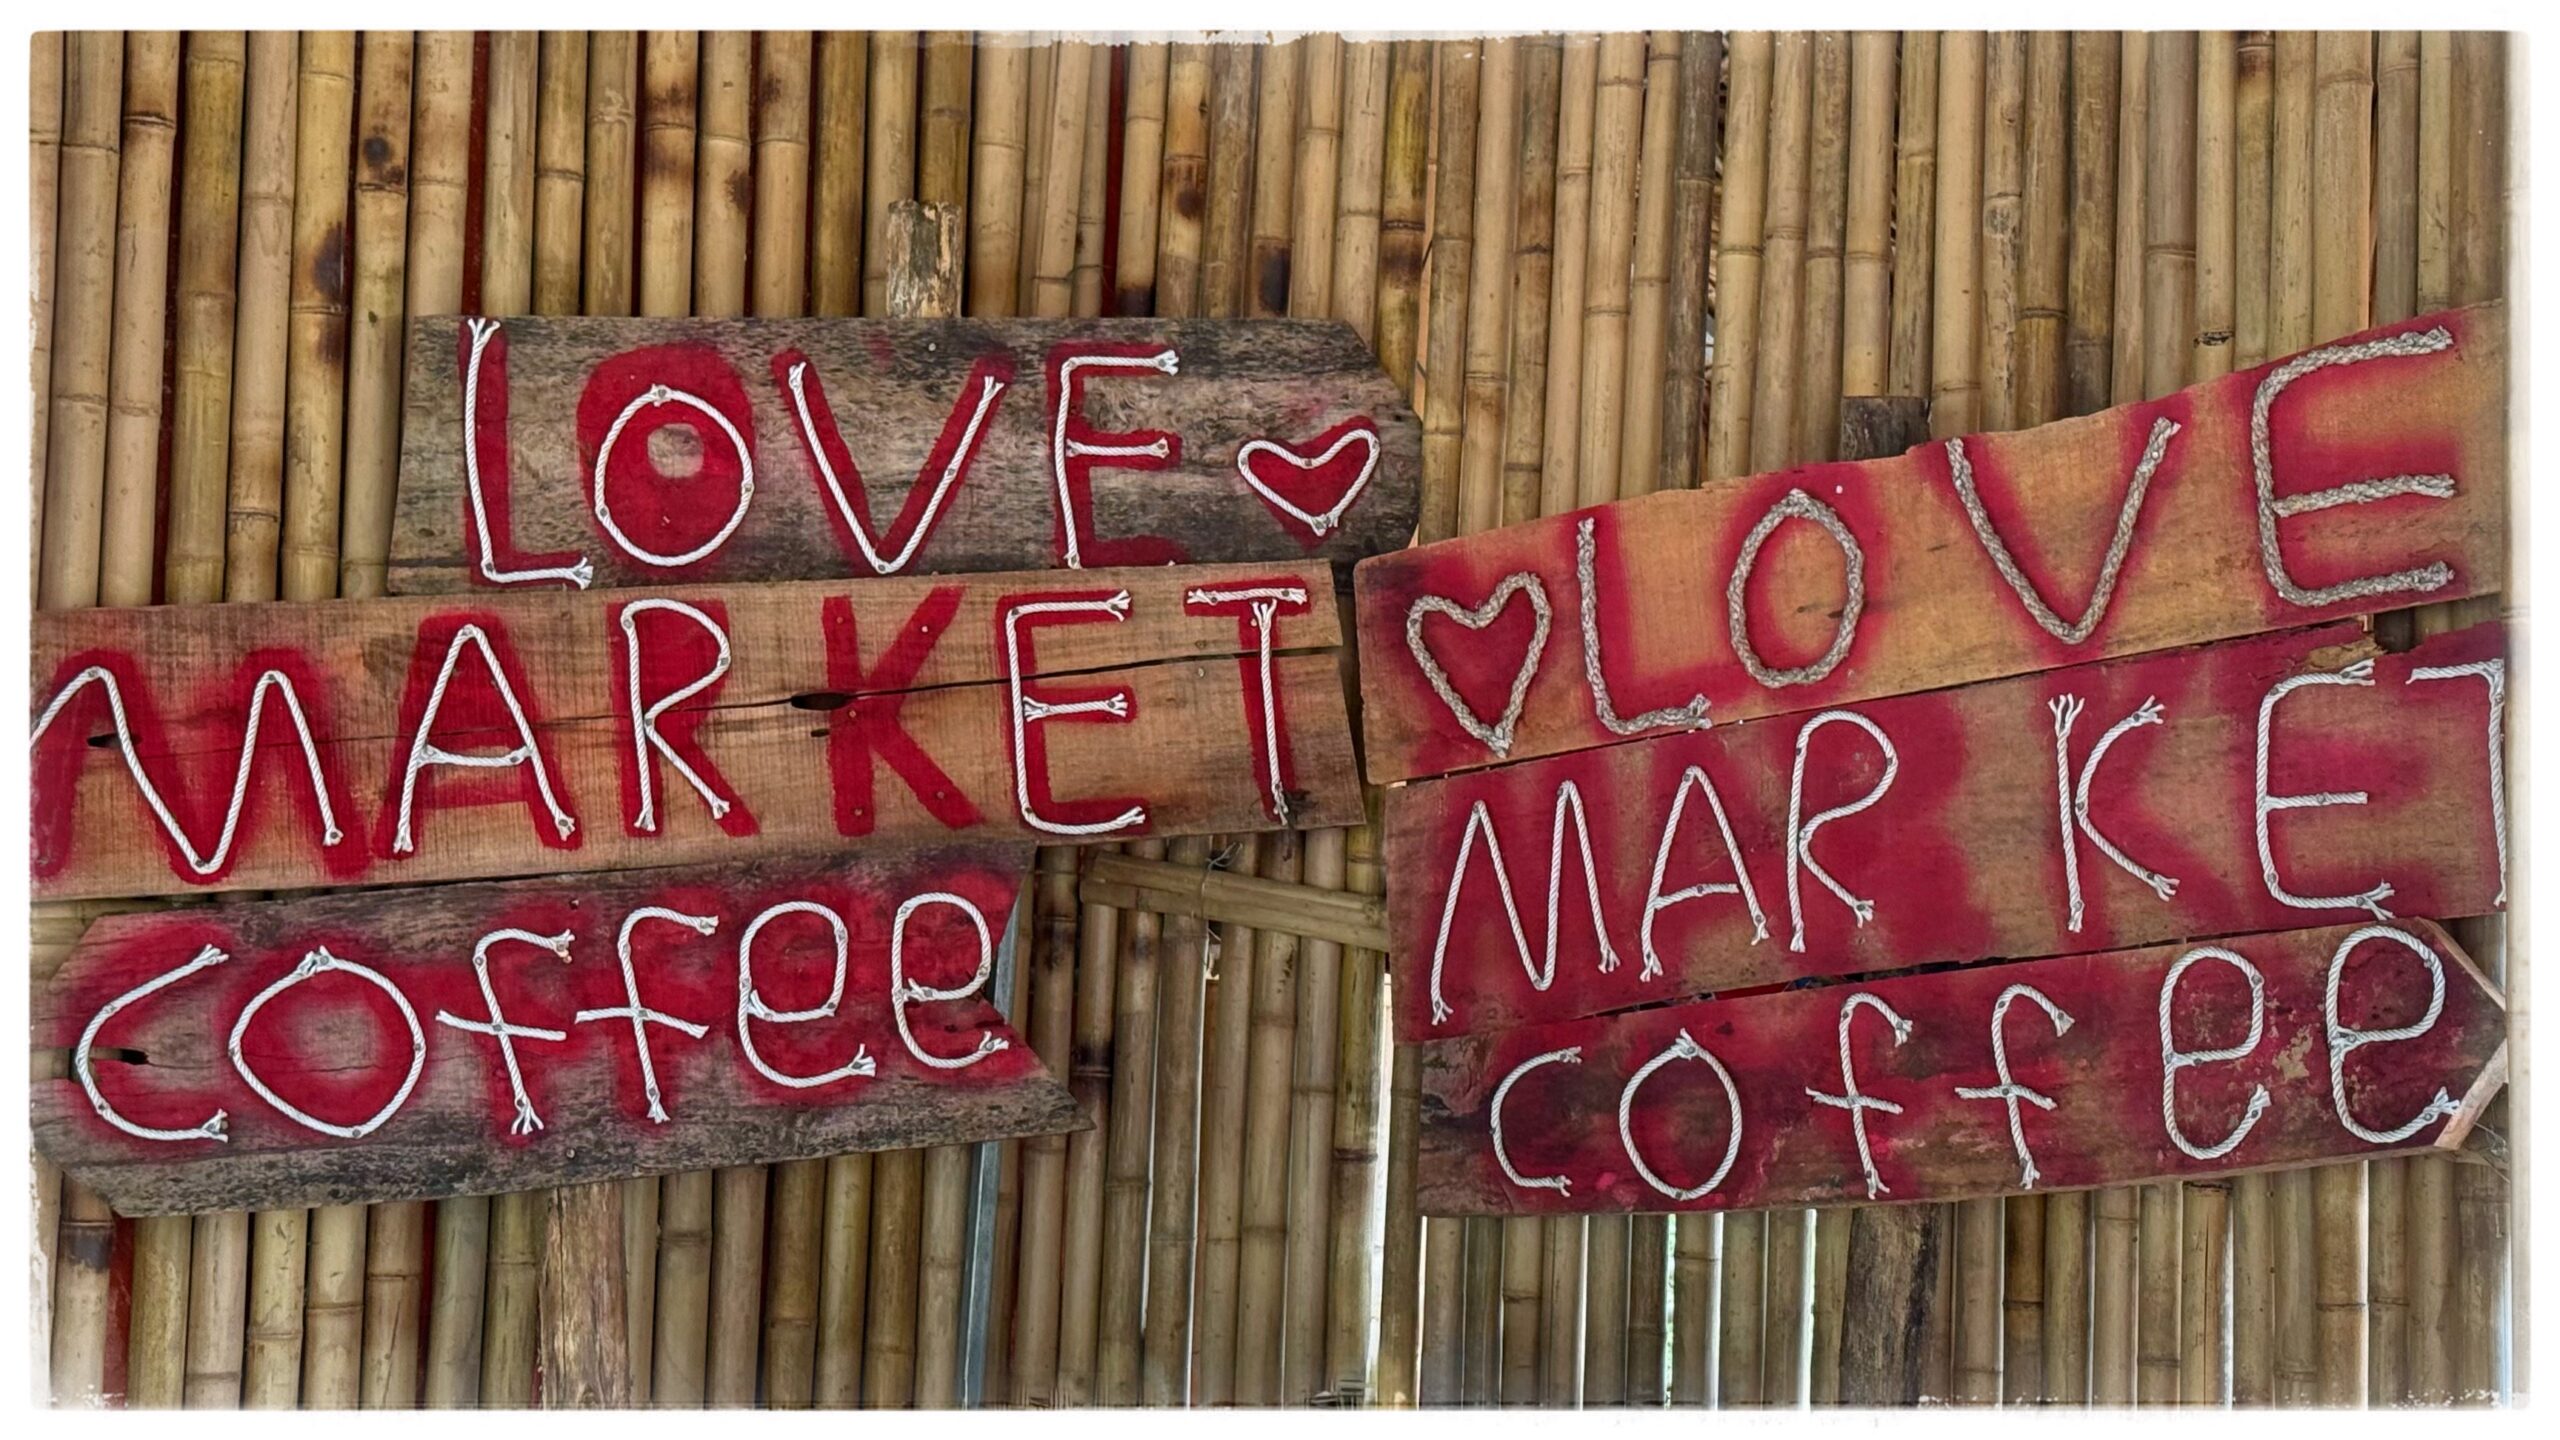 LOVE ♥
MARKET
coffee
♥ LOVE
MARKET
coffee